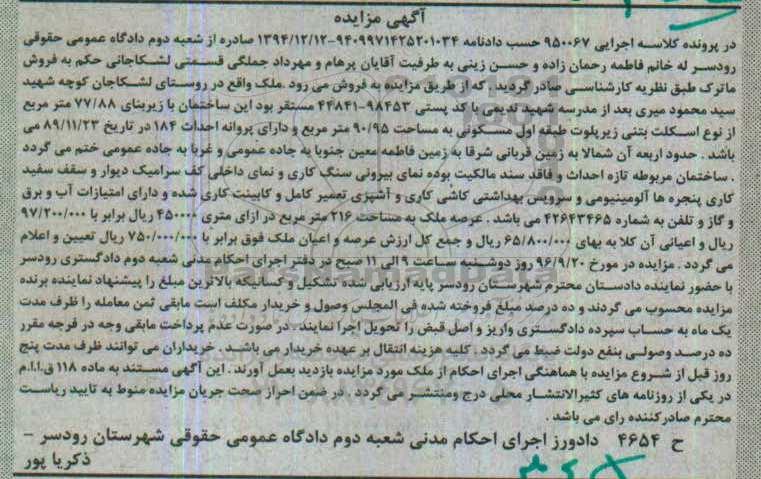 آگهی مزایده
در پرونده کلاسه اجرایی ۹۵۰۰۶۷ حسب دادنامه ۹۴۰۹۹۷۱۴۲۵۲۰۱۰۳۴-۱۳۹۴/۱۲/۱۲ صادره از شعبه دوم دادگاه عمومی حقوقی
رودسر له خانم فاطمه رحمان زاده و حسن زینی به طرفیت آقایان پرهام و مهرداد جملگی قسمتی لشکاجانی حکم به فروش
ماترک طبق نظریه کارشناسی صادر گردید . که از طریق مزایده به فروش می رود .ملک واقع در روستای لشکاجان کوچه شهید
سید محمود میری بعد از مدرسه شهید ندیمی با کد پستی ۹۸۴۵۳-۴۴۸۴۱ مستقر بود این ساختمان با زیربنای ۷۷/۸۸ متر مربع
از نوع اسکلت بتنی زیرپلوت طبقه اول مسکونی به مساحت ۹۰/۹۵ متر مربع و دارای پروانه احداث ۱۸۴ در تاریخ ۸۹/۱۱/۲۳ می
باشد . حدود اربعه آن شمالا به زمین قربانی شرقا به زمین فاطمه معین جنوبا به جاده عمومی و غربا به جاده عمومی ختم می گردد
. ساختمان مربوطه تازه احداث و فاقد سند مالکیت بوده نمای بیرونی سنگ کاری و نمای داخلی کف سرامیک دیوار و سقف سفید
کاری پنجره ها آلومینیومی و سرویس بهداشتی کاشی کاری و آشپزی تعمیر کامل و کابینت کاری شده و دارای امتیازات آب و برق
و گاز و تلفن به شماره ۴۲۶۴۳۴۶۵ می باشد . عرصه ملک به مساحت ۲۱۶ متر مربع در ازای متری ۴۵۰۰۰۰ ریال برابر با ۹۷/۲۰۰/۰۰۰
ریال و اعیانی آن کلا به بهای ۶۵/۸۰۰/۰۰۰ ریال و جمع کل ارزش عرصه و اعیان ملک فوق برابر با ۷۵۰/۰۰۰/۰۰۰ ریال تعیین و اعلام
می گردد . مزایده در مورخ ۹۶/۹/۲۰ روز دوشنبه ساعت ۹ الی ۱۱ صبح در دفتر اجرای احکام مدنی شعبه دوم دادگستری رودسر
با حضور نماینده دادستان محترم شهرستان رودسر پایه ارزیابی شده تشکیل و کسانیکه بالاترین مبلغ را پیشنهاد نماینده برنده
مزایده محسوب می گردند و ده درصد مبلغ فروخته شده فی المجلس وصول و خریدار مکلف است مابقی ثمن معامله را ظرف مدت
یک ماه به حساب سپرده دادگستری واریز و اصل قبض را تحویل اجرا نمایند . در صورت عدم پرداخت مابقی وجه در فرجه مقرر
ده درصد وصولی بنفع دولت ضبط می گردد . کلیه هزینه انتقال بر عهده خریدار می باشد . خریداران می توانند ظرف مدت پنج
روز قبل از شروع مزایده با هماهنگی اجرای احکام از ملک مورد مزایده بازدید بعمل آورند . این آگهی مستند به ماده ۱۱۸ ق.ا.ا.م
در یکی از روزنامه های کثیرالانتشار محلی درج ومنتشر می گردد . در ضمن احراز صحت جریان مزایده منوط به تایید ریاست
محترم صادرکننده رای می باشد .
ح ۴۶۵۴ دادورز اجرای احکام مدنی شعبه دوم دادگاه عمومی حقوقی شهرستان رودسر –
ذکریا پور